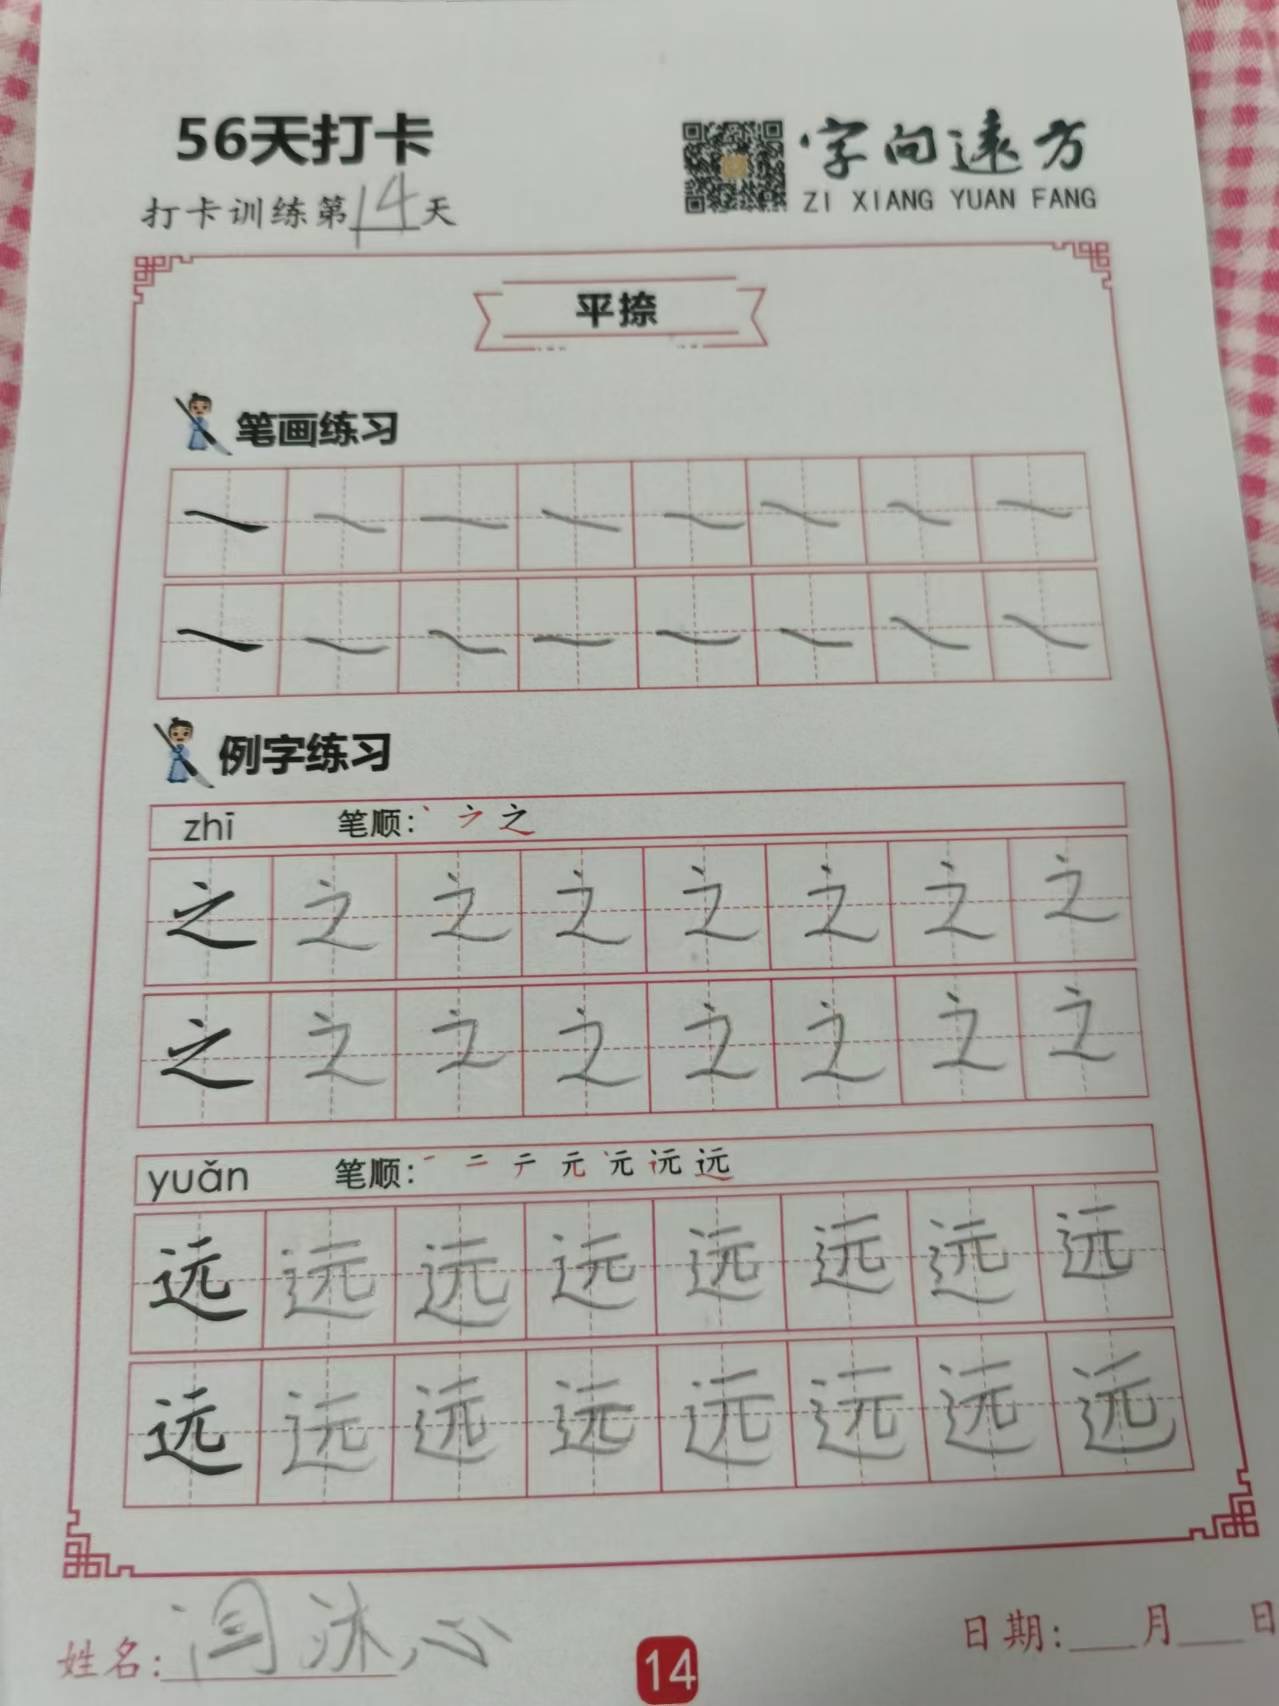 56天打卡
字向远方
ZI XIANG YUAN FANG
打卡训练第14天
平捺
笔画练习
例字练习
zhī 笔顺: 丶 之
之 之 之 之 之 之 之 之
之 之 之 之 之 之 之 之
yuǎn 笔顺: 一 二 テ 元 远
远 远 远 远 远 远 远 远
远 远 远 远 远 远 远 远
姓名: 闫沐心
日期: 月 日
14